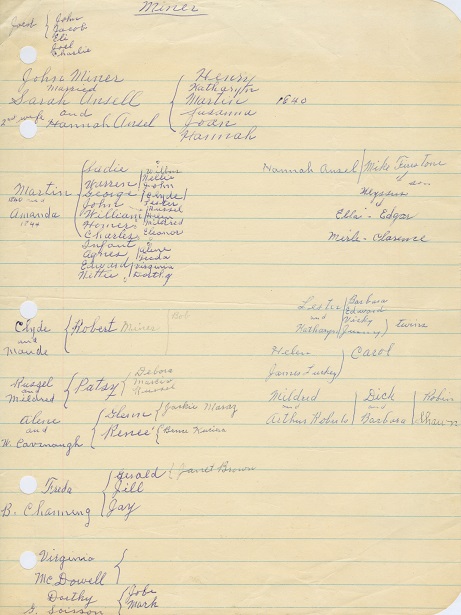 Miner
Jacob { John
Jacob
Eli
Joel
Charlie
John Miner
Married
Sarah Ansell
and
2nd wife Hannah Ansel
{ Henry
Katharyn
Martin 1840
Susanna
Joan
Hannah
Martin
and
Amanda
1844
{ Sadie
Warren
George
John
William
Homer
Charles
Infant
Agnes
Edward
Nettie
Nellie
John
Clyde
Lester
Russel
Helen
Mildred
Eleanor
Aline
Freda
Virginia
Dorthy
Hannah Ansel / Mike
son
Ulysses
Ella - Edgar
Merle - Clarence
Clyde
and
Maude
{ Robert Miner } Bob
Lester
and
Katharyn
Barbara
Edward
Vicky
Jimmy } twins
Helen
James
) Carol
Russel
and
Mildred
{ Patsy { Debora
Martin
Russel
Mildred
and
Arthur Roberts
Dick
and
Barbara
Robin
Shawn
Aline
and
W. Cavenaugh
{ Glenn { Jackie
Renee' { Bruce
Freda
B. Channing
{ Gerald { Janet Brown
Jill
Jay
Virginia
McDowell {
Dorthy
G. Soisson
{ Jobe
Mark